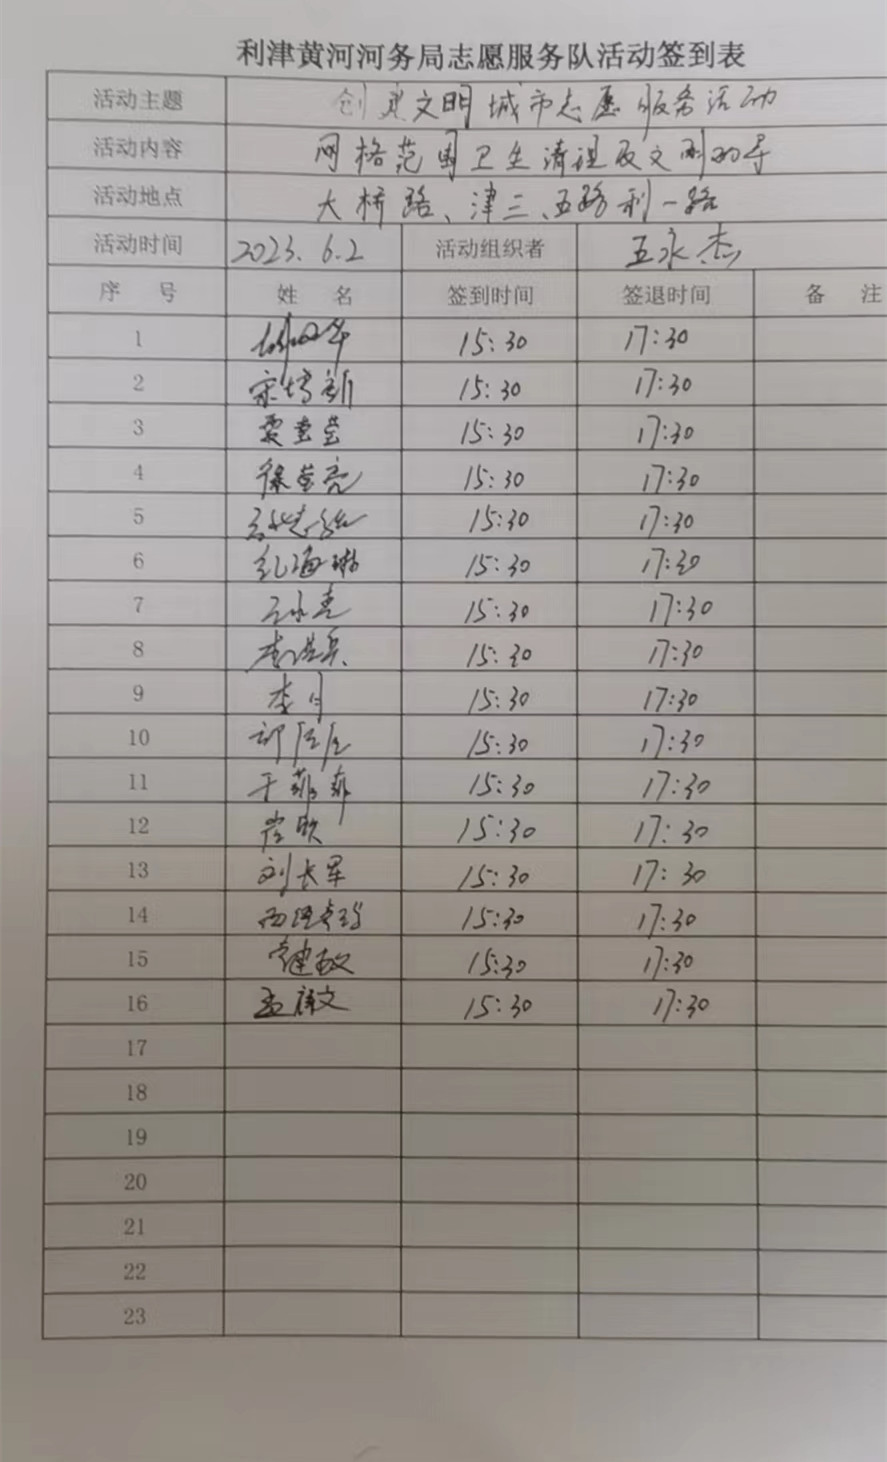 利津黄河河务局志愿服务队活动签到表
活动主题 创建文明城市志愿服务活动
活动内容 网格范围卫生清理及文明劝导
活动地点 大桥路、津三、五路利一路
活动时间 2023.6.2 活动组织者 王永杰
序 号 姓 名 签到时间 签退时间 备 注
1 15:30 17:30
2 宋培新 15:30 17:30
3 15:30 17:30
4 徐莹亮 15:30 17:30
5 15:30 17:30
6 纪海琳 15:30 17:30
7 15:30 17:30
8 李洪兵 15:30 17:30
9 李月 15:30 17:30
10 15:30 17:30
11 于菲菲 15:30 17:30
12 崔欣 15:30 17:30
13 刘长军 15:30 17:30
14 15:30 17:30
15 15:30 17:30
16 15:30 17:30
17
18
19
20
21
22
23